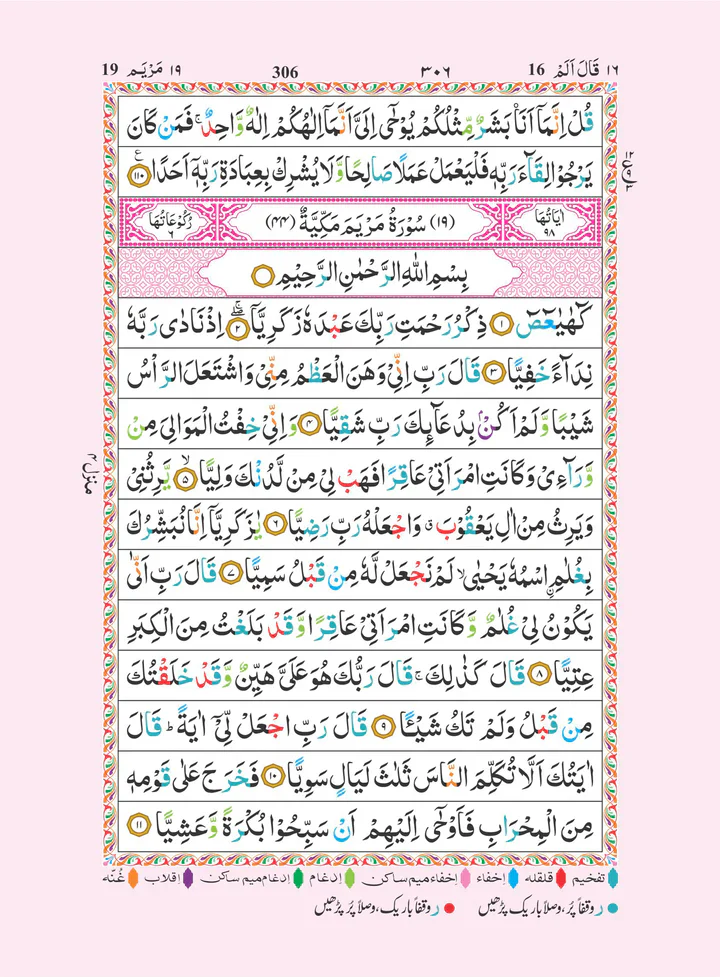 ١٦ قَالَ اَلَمْ 16 ٣٠٦ 306 ١٩ مَرْيَم 19
قُلْ اِنَّمَاۤ اَنَا۠ بَشَرٌ مِّثْلُكُمْ يُوْحٰۤى اِلَیَّ اَنَّمَاۤ اِلٰهُكُمْ اِلٰهٌ وَّاحِدٌ ۚ فَمَنْ كَانَ
يَرْجُوْا لِقَآءَ رَبِّهٖ فَلْيَعْمَلْ عَمَلًا صَالِحًا وَّلَا يُشْرِكْ بِعِبَادَةِ رَبِّهٖۤ اَحَدًا ١١٠
اٰيَاتُهَا ٩٨ (١٩) سُوْرَةُ مَرْيَمَ مَكِّيَّةٌ (٤٤) رُكُوْعَاتُهَا ٦
بِسْمِ اللّٰهِ الرَّحْمٰنِ الرَّحِيْمِ
كٓهٰيٰعٓصٓ ١ ذِكْرُ رَحْمَتِ رَبِّكَ عَبْدَهٗ زَكَرِيَّا ٢ اِذْ نَادٰى رَبَّهٗ
نِدَآءً خَفِيًّا ٣ قَالَ رَبِّ اِنِّیْ وَهَنَ الْعَظْمُ مِنِّیْ وَاشْتَعَلَ الرَّاْسُ
شَيْبًا وَّلَمْ اَكُنْۢ بِدُعَآىِٕكَ رَبِّ شَقِيًّا ٤ وَاِنِّیْ خِفْتُ الْمَوَالِیَ مِنْ
وَّرَآءِیْ وَكَانَتِ امْرَاَتِیْ عَاقِرًا فَهَبْ لِیْ مِنْ لَّدُنْكَ وَلِيًّا ٥ يَّرِثُنِیْ
وَيَرِثُ مِنْ اٰلِ يَعْقُوْبَ ۖ وَاجْعَلْهُ رَبِّ رَضِيًّا ٦ يٰزَكَرِيَّاۤ اِنَّا نُبَشِّرُكَ
بِغُلٰمِ اِ۟سْمُهٗ يَحْيٰى ۙ لَمْ نَجْعَلْ لَّهٗ مِنْ قَبْلُ سَمِيًّا ٧ قَالَ رَبِّ اَنّٰى
يَكُوْنُ لِیْ غُلٰمٌ وَّكَانَتِ امْرَاَتِیْ عَاقِرًا وَّقَدْ بَلَغْتُ مِنَ الْكِبَرِ
عِتِيًّا ٨ قَالَ كَذٰلِكَ ۚ قَالَ رَبُّكَ هُوَ عَلَیَّ هَيِّنٌ وَّقَدْ خَلَقْتُكَ
مِنْ قَبْلُ وَلَمْ تَكُ شَيْـًٔا ٩ قَالَ رَبِّ اجْعَلْ لِّیْۤ اٰيَةً ؕ قَالَ
اٰيَتُكَ اَلَّا تُكَلِّمَ النَّاسَ ثَلٰثَ لَيَالٍ سَوِيًّا ١٠ فَخَرَجَ عَلٰى قَوْمِهٖ
مِنَ الْمِحْرَابِ فَاَوْحٰۤى اِلَيْهِمْ اَنْ سَبِّحُوْا بُكْرَةً وَّعَشِيًّا ١١
منزل ٤
تفخیم قلقلہ اِخفاء اِخفاء میم ساکن اِدغام اِدغام میم ساکن اِقلاب غُنّہ
ر وقفاً پُر، وصلاً باریک پڑھیں ر وقفاً باریک، وصلاً پُر پڑھیں